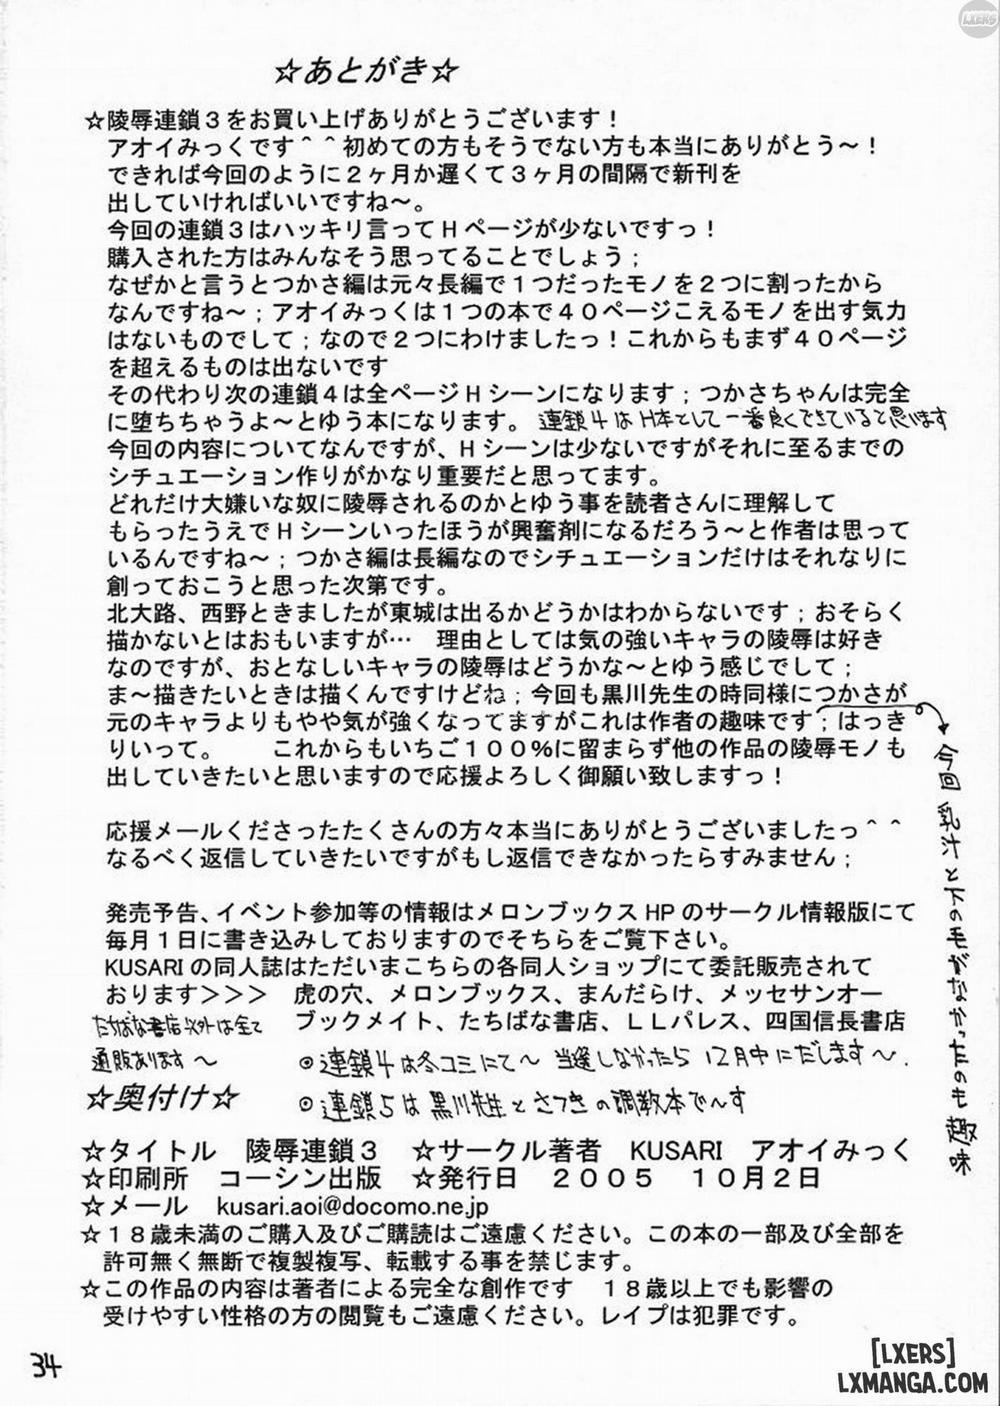 LXERS
☆あとがき☆
☆陵辱連鎖３をお買い上げありがとうございます！
アオイみっくです＾＾初めての方もそうでない方も本当にありがとう～！
できれば今回のように２ヶ月か遅くて３ヶ月の間隔で新刊を
出していければいいですね～。
今回の連鎖３はハッキリ言ってＨページが少ないですっ！
購入された方はみんなそう思ってることでしょう；
なぜかと言うとつかさ編は元々長編で１つだったモノを２つに割ったから
なんですね～；アオイみっくは１つの本で４０ページこえるモノを出す気力
はないものでして；なので２つにわけましたっ！これからもまず４０ページ
を超えるものは出ないです
その代わり次の連鎖４は全ページＨシーンになります；つかさちゃんは完全
に堕ちちゃうよ～とゆう本になります。連鎖４はＨ本として一番良くできていると思います
今回の内容についてなんですが、Ｈシーンは少ないですがそれに至るまでの
シチュエーション作りがかなり重要だと思ってます。
どれだけ大嫌いな奴に陵辱されるのかとゆう事を読者さんに理解して
もらったうえでＨシーンいったほうが興奮剤になるだろう～と作者は思って
いるんですね～；つかさ編は長編なのでシチュエーションだけはそれなりに
創っておこうと思った次第です。
北大路、西野ときましたが東城は出るかどうかはわからないです；おそらく
描かないとはおもいますが…　理由としては気の強いキャラの陵辱は好き
なのですが、おとなしいキャラの陵辱はどうかな～とゆう感じでして；
ま～描きたいときは描くんですけどね；今回も黒川先生の時同様につかさが
元のキャラよりもやや気が強くなってますがこれは作者の趣味です；はっき
りいって。　　これからもいちご１００％に留まらず他の作品の陵辱モノも
出していきたいと思いますので応援よろしく御願い致しますっ！
今回乳汁と下の毛がなかったのも趣味
応援メールくださったたくさんの方々本当にありがとうございましたっ＾＾
なるべく返信していきたいですがもし返信できなかったらすみません；
発売予告、イベント参加等の情報はメロンブックスHPのサークル情報版にて
毎月１日に書き込みしておりますのでそちらをご覧下さい。
KUSARIの同人誌はただいまこちらの各同人ショップにて委託販売されて
おります＞＞＞　虎の穴、メロンブックス、まんだらけ、メッセサンオー
ブックメイト、たちばな書店、ＬＬパレス、四国信長書店
たちばな書店以外は全て
通販あります～
◎連鎖４は冬コミにて～ 当選しなかったら１２月中にだします～．
◎連鎖５は黒川先生とさつきの調教本で～す
☆奥付け☆
☆タイトル　陵辱連鎖３　☆サークル著者　KUSARI　アオイみっく
☆印刷所　コーシン出版　☆発行日　２００５　１０月２日
☆メール　kusari.aoi@docomo.ne.jp
☆１８歳未満のご購入及びご購読はご遠慮ください。この本の一部及び全部を
許可無く無断で複製複写、転載する事を禁じます。
☆この作品の内容は著者による完全な創作です　１８歳以上でも影響の
受けやすい性格の方の閲覧もご遠慮ください。レイプは犯罪です。
34
[LXERS]
LXMANGA.COM